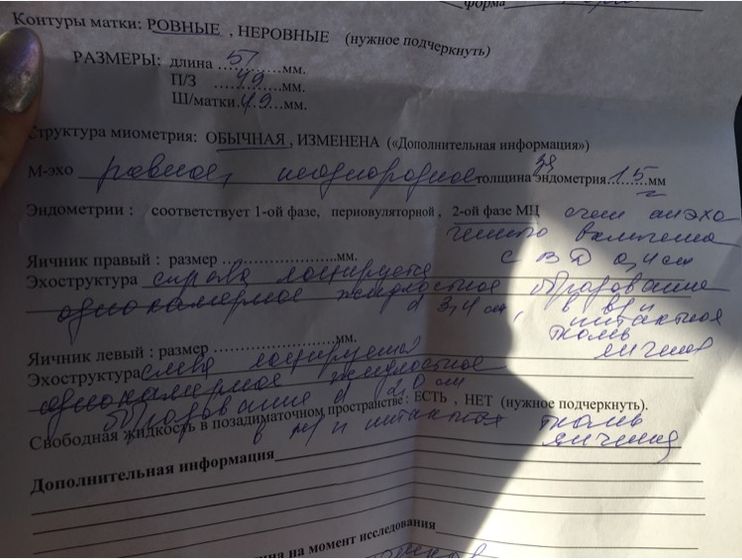 форма
Контуры матки: РОВНЫЕ , НЕРОВНЫЕ (нужное подчеркнуть)
РАЗМЕРЫ: длина 51 мм.
П/З 49 мм.
Ш/матки 49 мм.
Структура миометрия: ОБЫЧНАЯ , ИЗМЕНЕНА («Дополнительная информация»)
М-эхо ровное, неоднородное толщина эндометрия 15 мм
Эндометрии : соответствует 1-ой фазе, периовуляторной , 2-ой фазе МЦ
включения
с 0,4 см
Яичник правый : размер ........................мм.
Эхоструктура справа лоцируется
однокамерное жидкостное образование
d 3,4 см, в
интактная
ткань
яичника
Яичник левый : размер ........................мм.
Эхоструктура слева лоцируется
однокамерное жидкостное
образование d 2,0 см
Свободная жидкость в позадиматочном пространстве : ЕСТЬ , НЕТ (нужное подчеркнуть).
в и интактная ткань
яичника
Дополнительная информация
на момент исследования